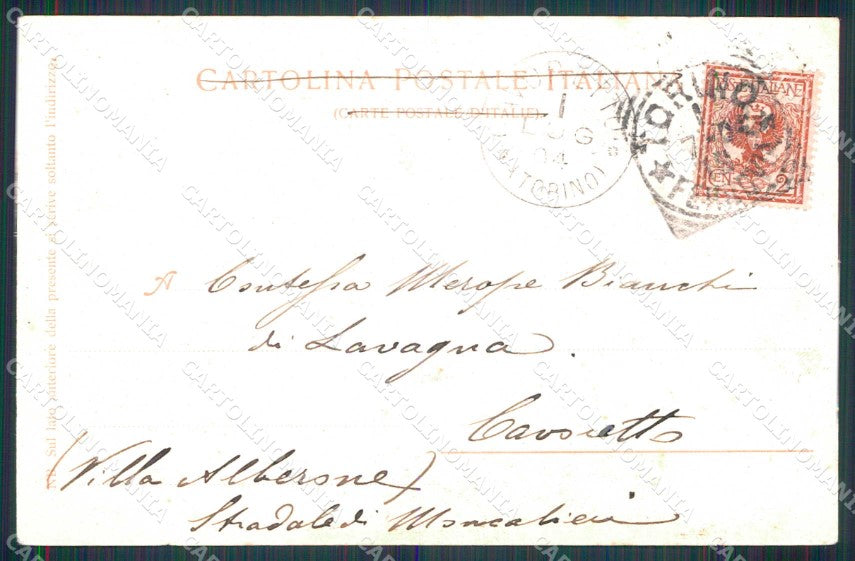 CARTOLINA POSTALE ITALIANA
(CARTE POSTALE D'ITALIE)
1
LUG
04
(TORINO)
TORINO
POSTE ITALIANE
CENT 2
N.B. Sul lato anteriore della presente si scrive soltanto l'indirizzo.
A Contessa Merope Bianchi
di Lavagna.
Cavoretto
(Villa Alberone)
Stradale di Moncalieri
CARTOLINOMANIA